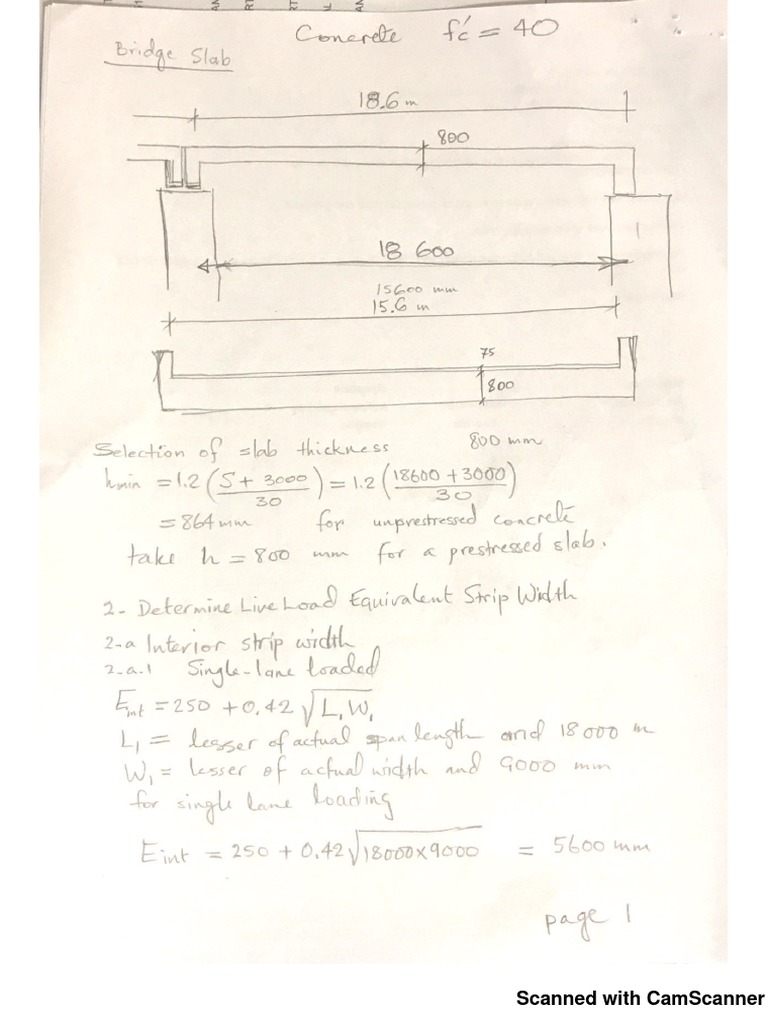 Concrete f'c = 40
Bridge Slab
18.6 m
800
18 600
15600 mm
15.6 m
75
800
Selection of slab thickness 800 mm
hmin = 1.2 (S + 3000 / 30) = 1.2 (18600 + 3000 / 30)
= 864 mm for unprestressed concrete
take h = 800 mm for a prestressed slab.
2- Determine Live Load Equivalent Strip Width
2-a Interior strip width
2-a.1 Single-lane loaded
Eint = 250 + 0.42 √L1W1
L1 = lesser of actual span length and 18000 m
W1 = lesser of actual width and 9000 mm
for single lane loading
Eint = 250 + 0.42 √18000x9000 = 5600 mm
page 1
Scanned with CamScanner